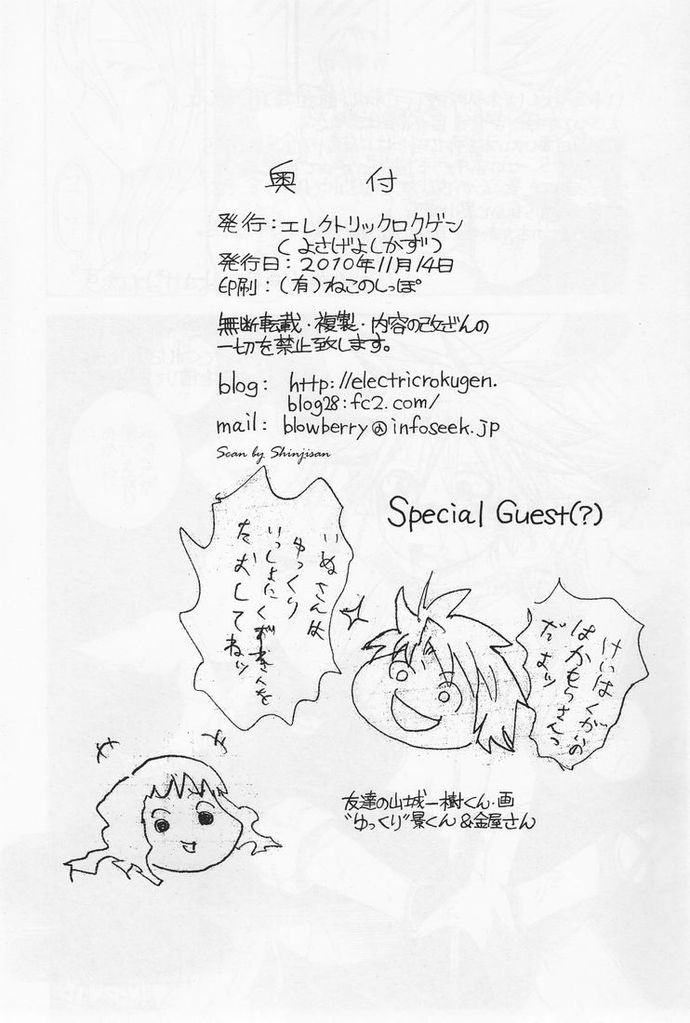 奥付
発行：エレクトリックロクゲン
（よさげよしかず）
発行日：2010年11月14日
印刷：（有）ねこのしっぽ
無断転載・複製・内容の改ざんの
一切を禁止致します。
blog: http://electricrokugen.
blog28:fc2.com/
mail: blowberry@infoseek.jp
Scan by Shinjisan
Special Guest(?)
けいはくがいの
はかもらさんっ
だよッ
いぬさんは
ゆっくり
いっしょにくがきんを
たおしてねッ
友達の山城一樹くん・画
"ゆっくり"景くん&金屋さん